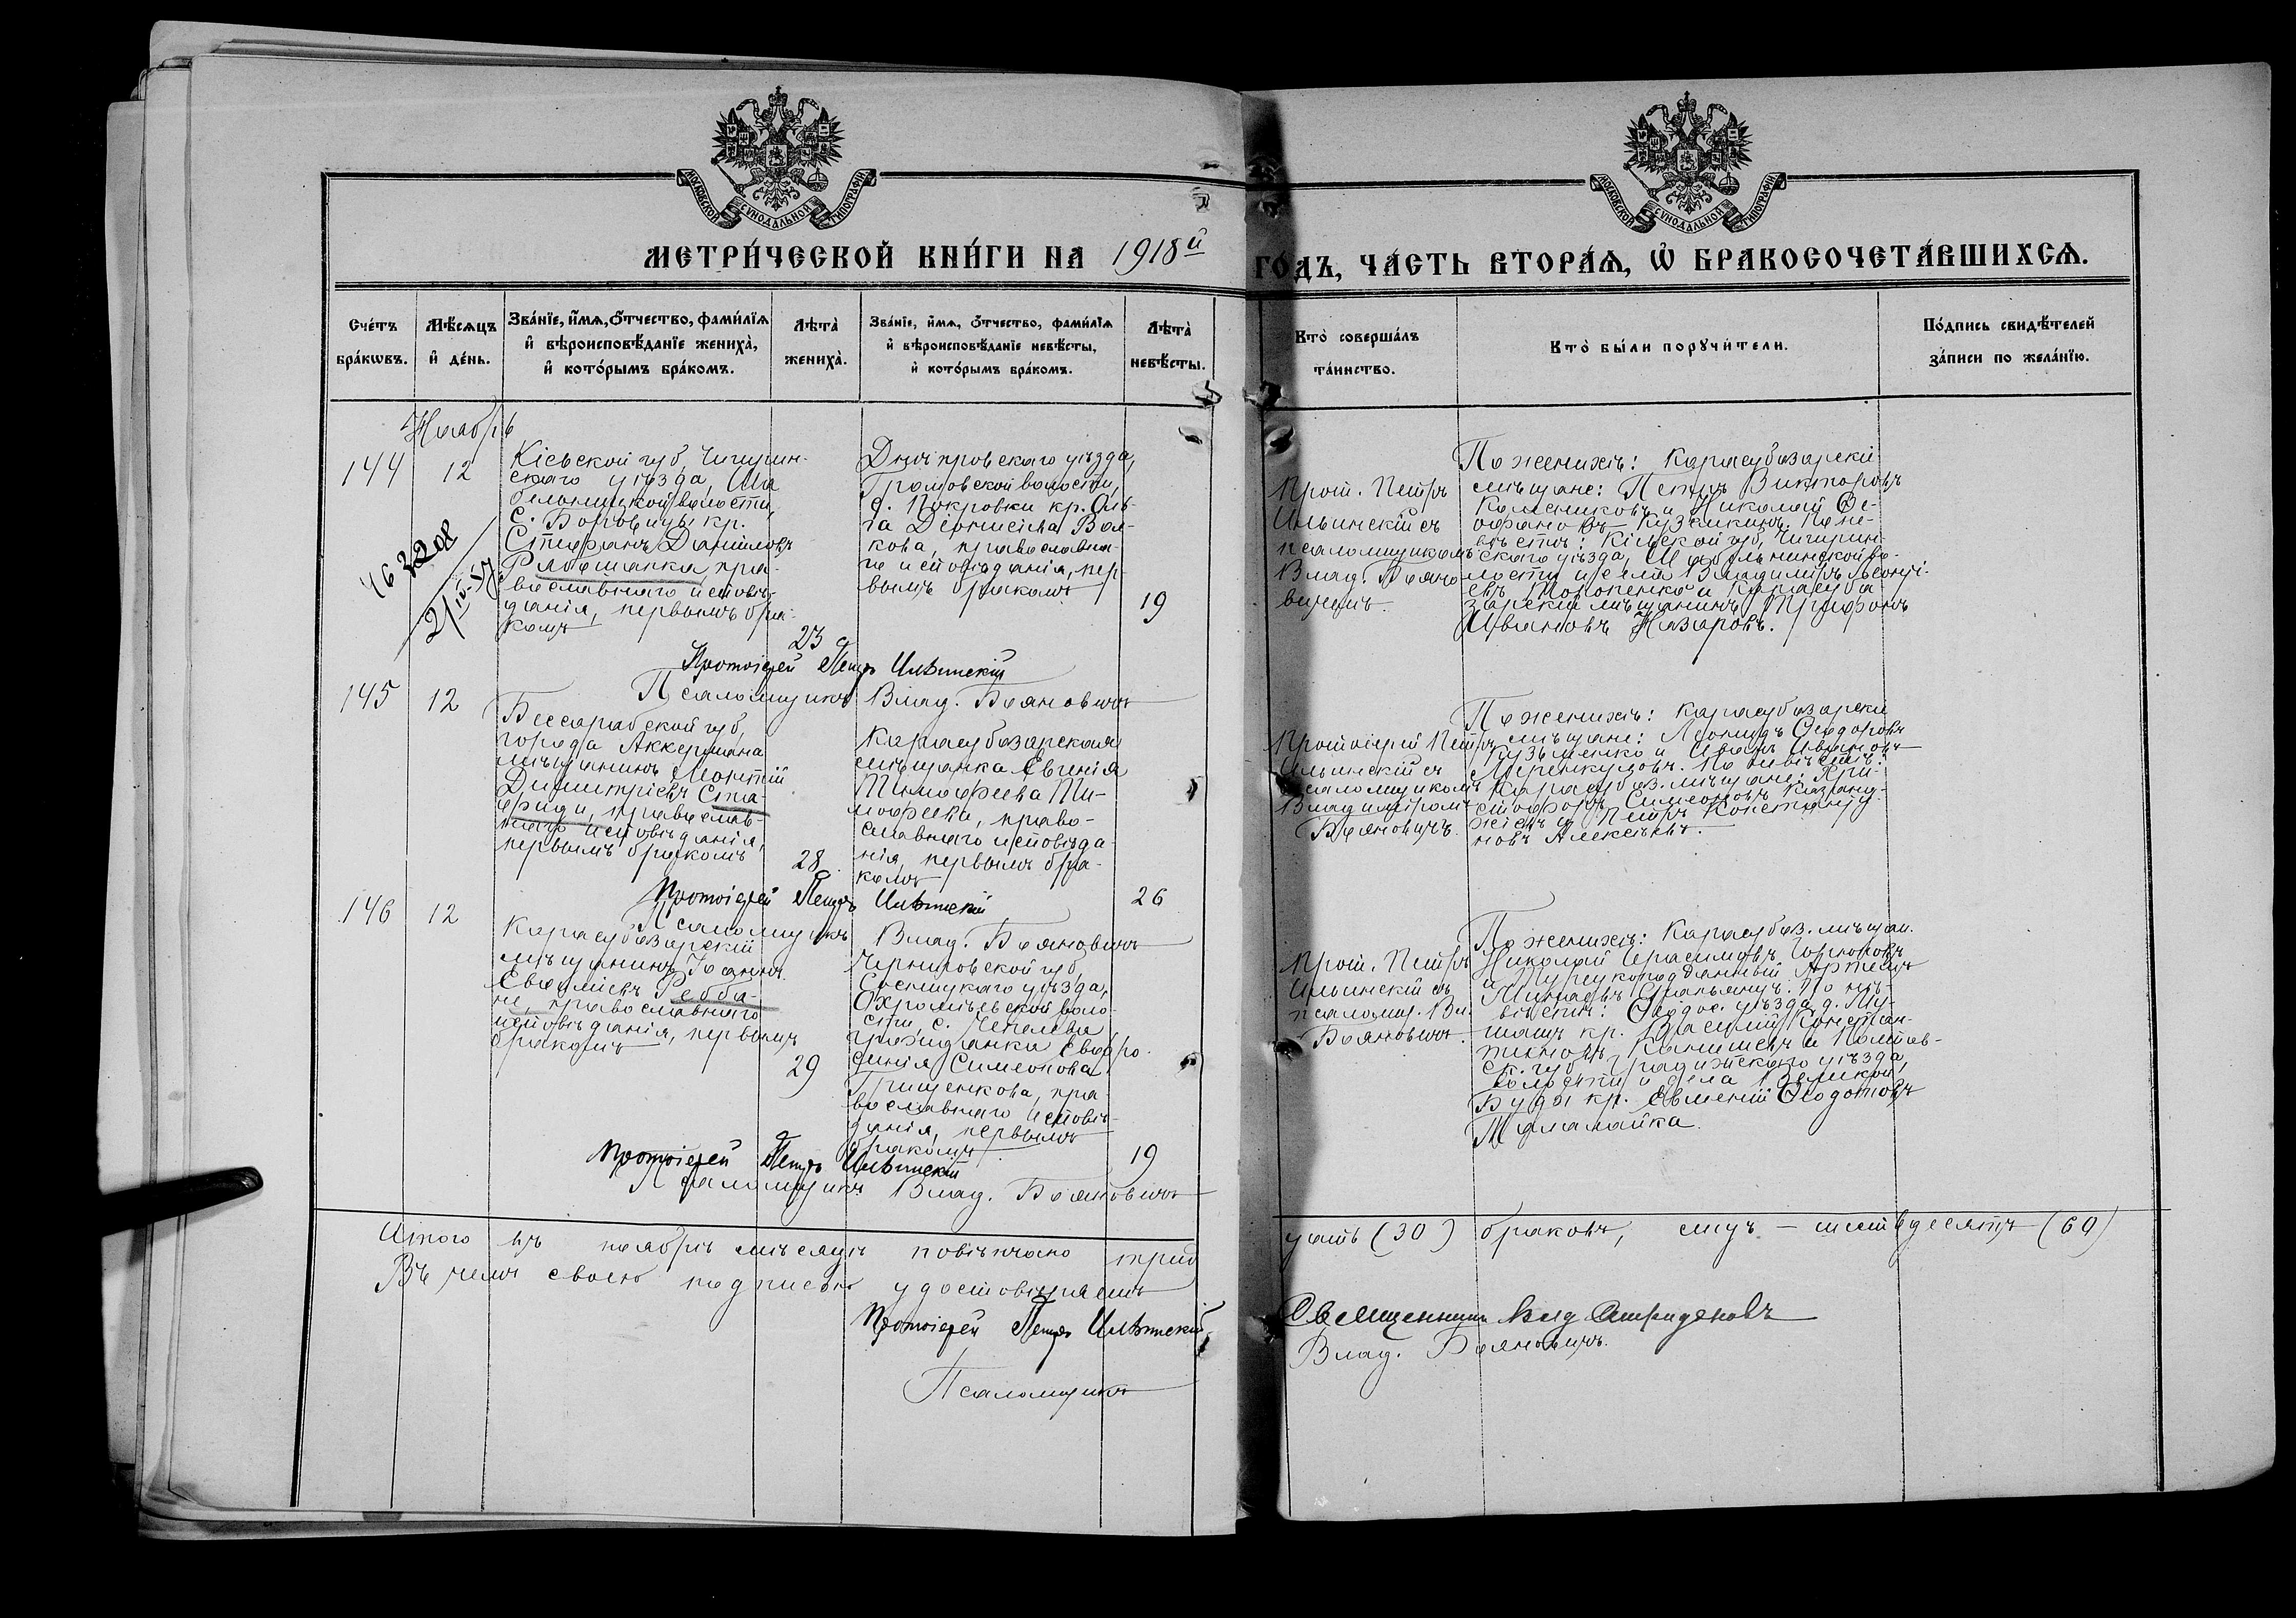 МОСКОВСКОЙ СѴНОДАЛЬНОЙ ТИПОГРАФІИ
МОСКОВСКОЙ СѴНОДАЛЬНОЙ ТИПОГРАФІИ
МЕТРИ́ЧЕСКОЙ КНИ́ГИ НА 1918й ГО́ДЪ, ЧА́СТЬ ВТОРА́Ѧ, Ѡ҆ БРАКОСОЧЕТА́ВШИХСѦ.
Сче́тъ бра́кѡвъ.
Мѣ́сѧцъ и҆ де́нь.
Зва́нїе, и҆́мѧ, ѻ҆́тчество, фами́лїѧ
и҆ вѣроисповѣ́данїе жениха̀,
и҆ кото́рымъ бра́комъ.
Лѣ́та жениха̀.
Зва́нїе, и҆́мѧ, ѻ҆́тчество, фами́лїѧ
и҆ вѣроисповѣ́данїе невѣ́сты,
и҆ кото́рымъ бра́комъ.
Лѣ́та невѣ́сты.
Кто̀ соверша́лъ
та́инство.
Кто̀ бы́ли порꙋчи́тели.
По́дпись свидѣ́телей
за́писи по жела́нїю.
Ноябрь
144
12
Кіевской губ, Чигирин-
скаго уѣзда, Ша
бельницкой волости,
с. Боровицы кр.
Стефанъ Даніиловъ
пра-
вославнаго исповѣ-
данія, первымъ бра-
комъ
23
Днѣпровскаго уѣзда,
Громовской волости,
с. Покровки кр. Оль-
га Діонисіева Вол-
кова, православна-
го исповѣданія, пер-
вымъ бракомъ
19
Прот. Петръ
Ильинскій съ
псаломщикомъ
Влад. Бояно
вичемъ.
По женихѣ: Карасубазарскіе
мѣщане: Петръ Викторовъ
Колесниковъ и Николай Ѳе-
офановъ Кузькинъ. По не-
вѣстѣ: Кіевской губ, Чигирин-
скаго уѣзда, Шабельнинской во-
лости и села Владиміръ Леонті-
евъ и Карасуба
зарскій мѣщанинъ Трифонъ
Ивановъ Назаровъ.
Протоіерей Петръ Ильинскій
Псаломщикъ Влад. Бояновичъ
145
12
Бессарабской губ,
города Аккермана
мѣщанинъ
Димитріевъ Ста-
фиди, православ-
наго исповѣданія,
первымъ бракомъ
28
Карасубазарская
мѣщанка Евгенія
Тимофеева Ти-
мофеева, право-
славнаго исповѣда-
нія, первымъ бра-
комъ
26
Протоіерей Петръ
Ильинскій съ
псаломщикомъ
Владиміромъ
Бояновичъ.
По женихѣ: Карасубазарскіе
мѣщане: Леонидъ Ѳеодоровъ
Кузьменко и Иванъ Ивановъ
По невѣстѣ:
Карасубаз. мѣщане: Хри-
стофоръ Симеоновъ
и Петръ Константи
новъ Алексѣевъ.
Протоіерей Петръ Ильинскій
Псаломщикъ Влад. Бояновичъ
146
12
Карасубазарскій
мѣщанинъ Іоаннъ
Евѳиміевъ Ребба-
не, православнаго
исповѣданія, первымъ
бракомъ
29
Черниговской губ,
Сосницкаго уѣзда,
Охромѣевской воло-
сти, с. Чепелева
гражданка Евфро-
синія Симеонова
Грищенкова, пра-
вославнаго исповѣ-
данія, первымъ
бракомъ
19
Прот. Петръ
Ильинскій съ
псаломщ. Вл.
Бояновичъ.
По женихѣ: Карасубаз. мѣщан.
Николай Герасимовъ
и Турецкоподданный Артемъ
Минаевъ По не-
вѣстѣ: Ѳеодос. уѣзда, д.
кр. Василій Констан-
тиновъ и Полтав-
ск. губ. Градижскаго уѣзда,
волости и села Великой
Буды кр. Евменій Ѳеодотовъ
Протоіерей Петръ Ильинскій
Псаломщикъ Влад. Бояновичъ
Итого въ ноябрѣ мѣсяцѣ повѣнчано трид
цать (30) браковъ, лицъ – шестьдесятъ (60)
Въ чемъ своею подписью удостовѣряемъ
Протоіерей Петръ Ильинскій,
Священникъ
Псаломщикъ Влад. Бояновичъ.